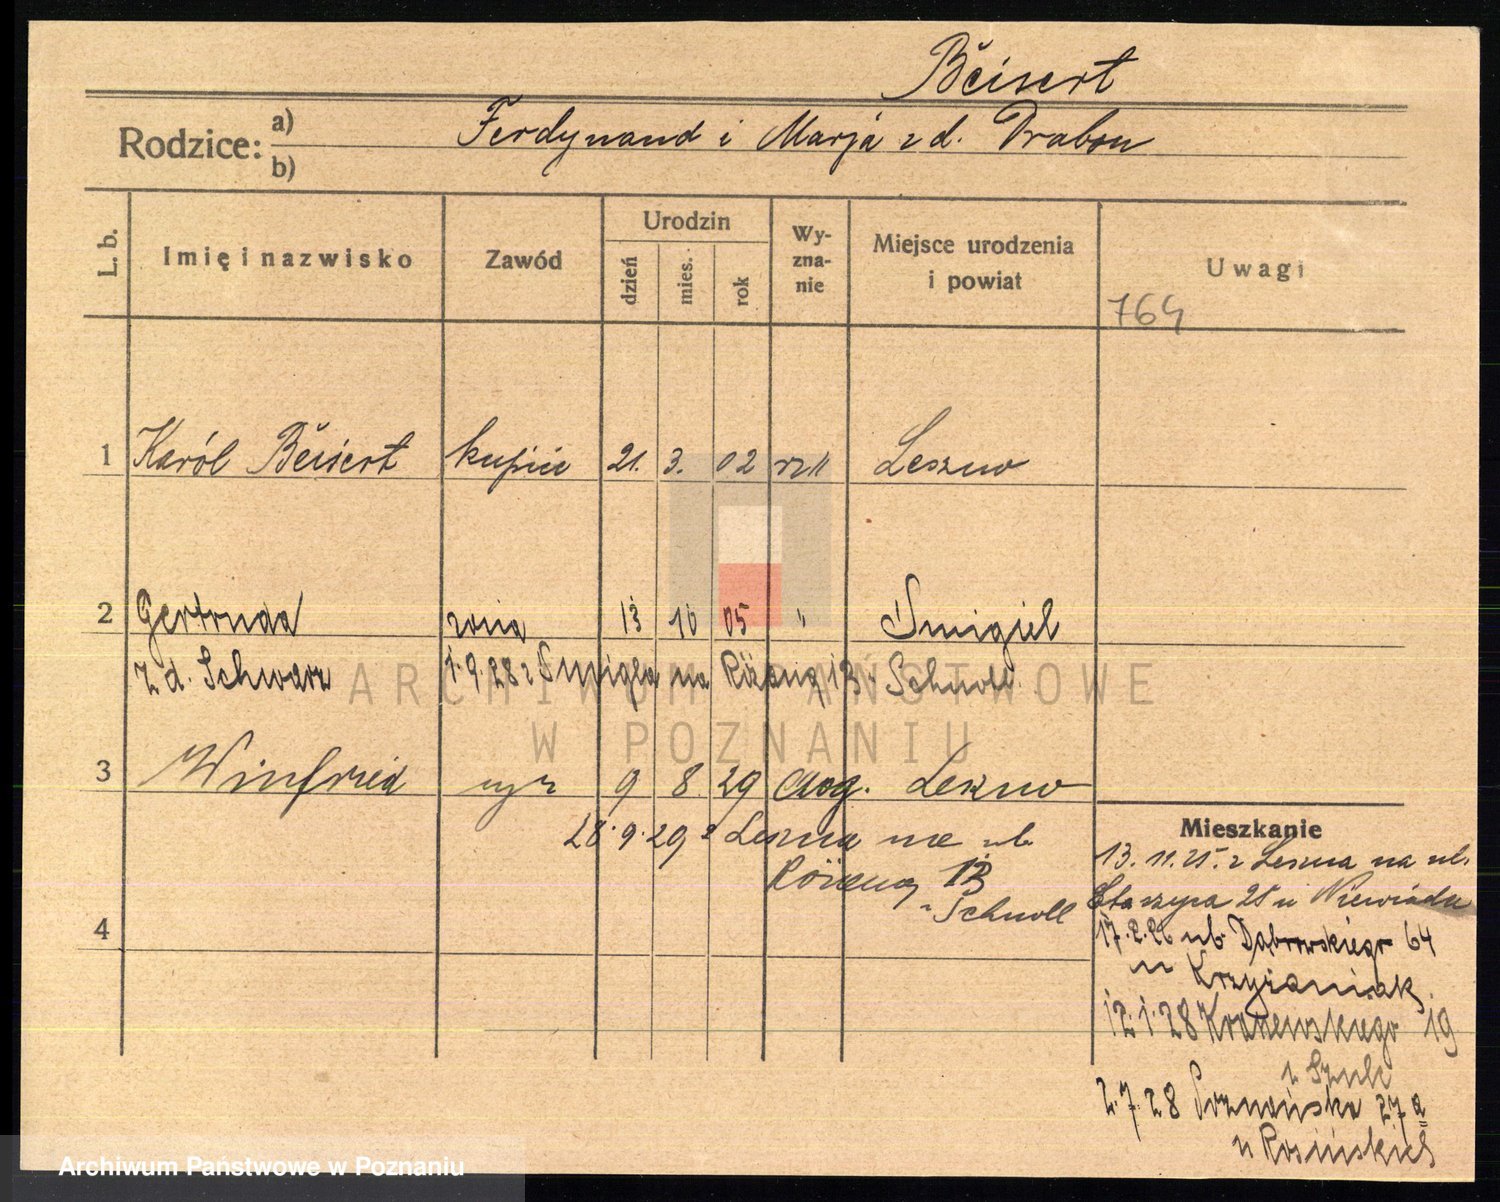 Bĕisert
Rodzice: a) Ferdynand i Marja z d. Drabon
b)
L. b. Imię i nazwisko Zawód Urodzin dzień mies. rok Wy-zna-nie Miejsce urodzenia i powiat Uwagi
764
1 Karól Bĕisert kupiec 21. 3. 02 rzk Leszno
2 Gertruda żona 13 10 05 " Smigiel
z d. Schwarz 1.9.28 z Smigla na Różaną 13 Schnoll
3 Winfried 9 8 29 Leszno
28.9.29 z Leszna na ul.
Różaną 13
Schnoll
4
Mieszkanie
13.11.25. z Leszna na ul.
Staszyca 25 u Niewiáda
17.2.26 ul. Dąbrowskiego 64
u Krzyżaniak
12.1.28 Kraszewskiego 19
u Szulc
2.7.28 Poznańska 27a
u Rosińskich
ARCHIWUM PAŃSTWOWE
W POZNANIU
Archiwum Państwowe w Poznaniu